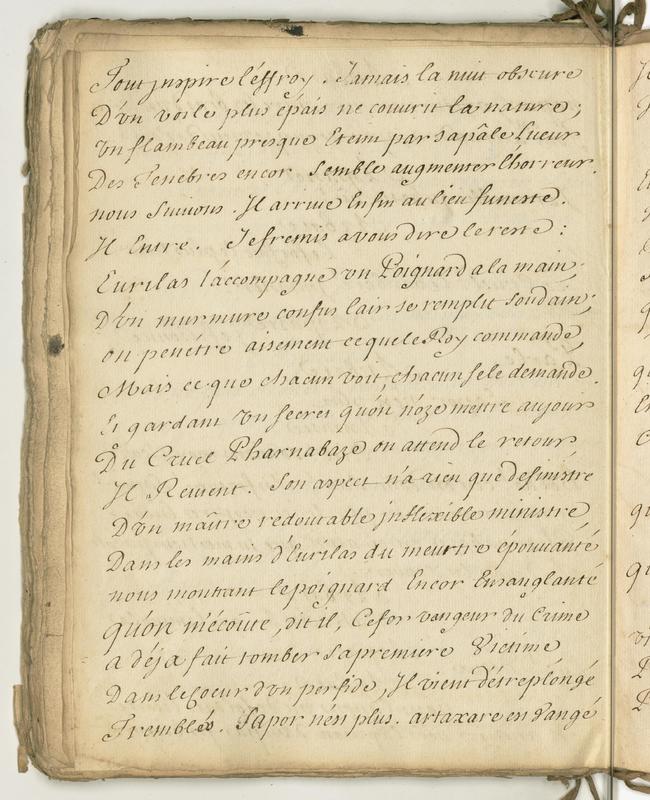 Tout jnspire l'éffroy. Jamais la nuit obscure
D'vn voile plus épais ne couurit la nature;
Vn flambeau presque Eteint par sa pâle Lueur
Des Tenebres encor semble augmenter l'horreur.
nous Suivons. Jl arrive Enfin au lieu funeste.
Jl Entre. Je fremis a vous dire le reste:
Eurilas l'accompagne vn Poignard a la main;
D'vn murmure confus l'air se remplit soudain;
on penétre aisement ce que le Roy commande,
Mais ce que chacun voit, chacun se le demande.
Et gardant Vn secret qu'on n'oze mettre au jour
Du Cruel Pharnabaze on attend le retour
Jl Revient. Son aspect n'a rien que de sinistre
D'vn maître redoutable jnflexible ministre
Dans les mains d'Eurilas du meurtre épouuanté
nous montrant le poignard Encor Ensanglanté
qu'on m'écoute, dit il, Ce fer vangeur du Crime
a déja fait tomber sa premiere Victime
Dans le Coeur d'vn perfide, Jl vient d'estre plongé
Tremblés. Sapor n'est plus. artaxare est Vangé